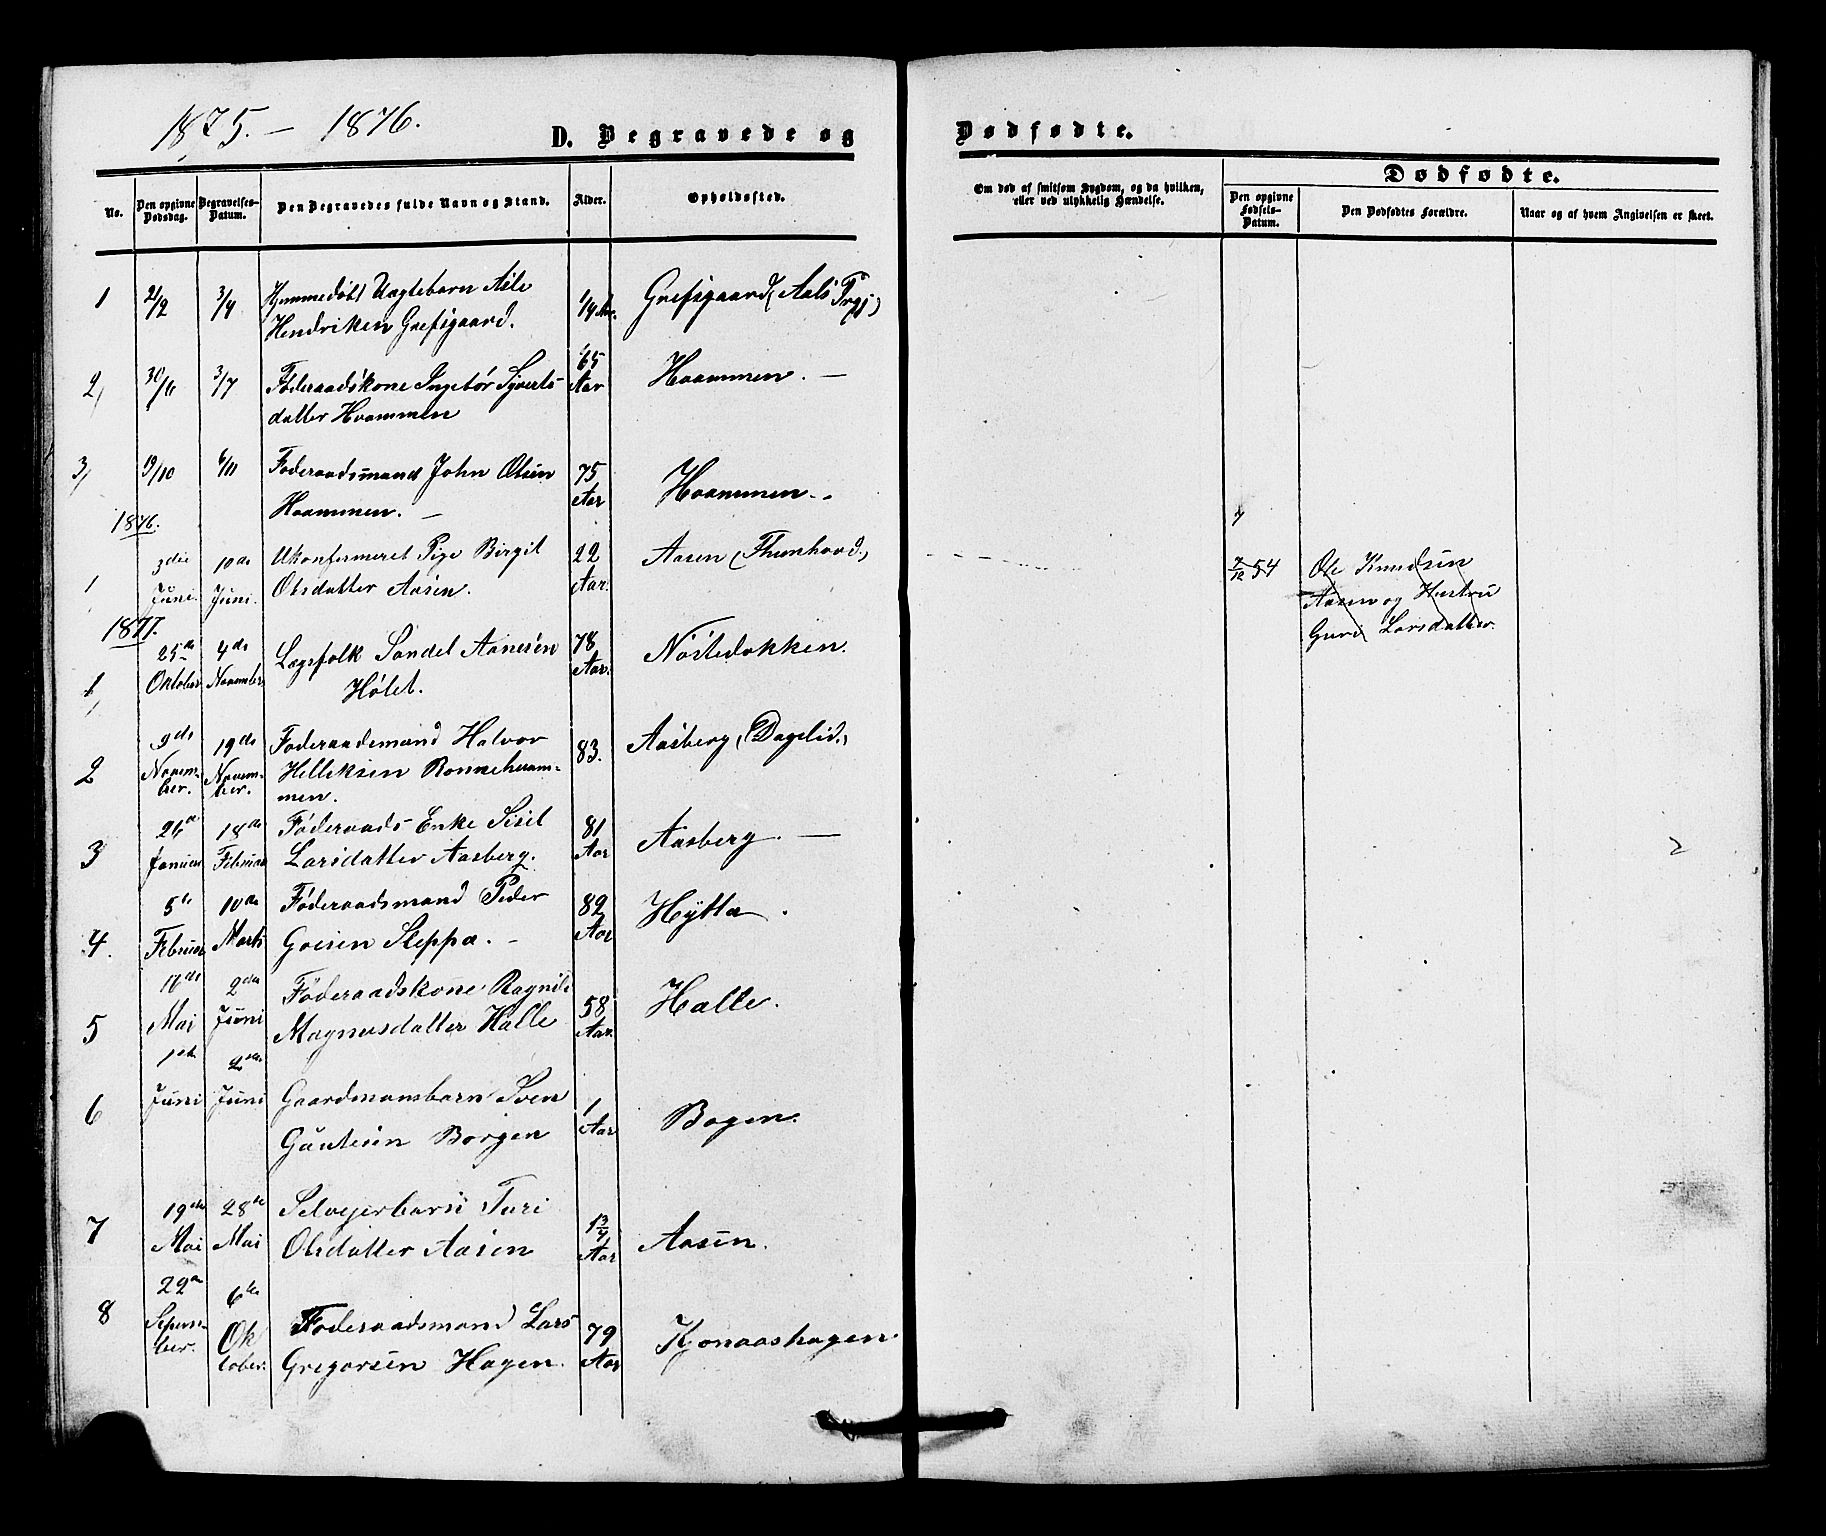 1875. – 1876.
D. Begravede og
Dødfødte.
No.
Den opgivne Dødsdag.
Begravelses-Datum.
Den Begravedes fulde Navn og Stand.
Alder.
Opholdssted.
Om død af smitsom Sygdom, og da hvilken,
eller ved ulykkelig Hændelse.
Dødfødte.
Den opgivne Fødsels-Datum.
Den Dødfødtes Forældre.
Naar og af hvem Angivelsen er skeet.
1 2/2 3/4 Hjemmedøbt Uægtebarn Asle 1/4 Aar. Grefsgaard (Aals Prgj)
Hendriksen Grefsgaard.
2, 30/6 3/7 Føderaadskone Ingebør Syverts- 65 Aar Hvammen. —
datter Hvammen
3, 19/10 6/11 Føderaadsmand John Olsen 75 Aar Hvammen. –
Hvammen. –
1876.
1 3die Juni. 10de Juni. Ukonfirmeret Pige Birgit 22 Aar. Aasen (Thunhovd.)
Olsdatter Aasen.
7/12 54 Ole Knudsen
Aasen og Hustru
Guri Larsdatter.
1877.
1 25de Oktober 4de November Lægsfolk Sandel Aanesen 78 Aar. Nöstedokken.
Hølet.
2 9de November. 19de November. Føderaadsmand Halvor 83. Aasberg (Dagelid.)
Helleksen Bonneheram-
men.
3 Januar 18de Februar Føderaads Enke Sisel 81 Aar Aasberg. —
Larsdatter Aasberg.
4. 5te Februar 10de Marts Føderaadsmand Peder 82 Aar Hÿtta.
Goesen Sleppa. –
5 Mai 2den Juni Føderaadskone Ragnil 58 Aar. Halle.
Magnusdatter Halle
6 1ste Juni 2den Juni Gaardmansbarn Sven 1 Aar Bagen.
Gäutesen Borgen
7 19de Mai 28de Mai Selveierbarn Turi 1 3/4 Aar Aasen.
Olsdatter Aasen
8 29de September. 6te Oktober. Føderaadsmand Lars 79 Aar Kjonaashagen
Gregorsen Hagen.